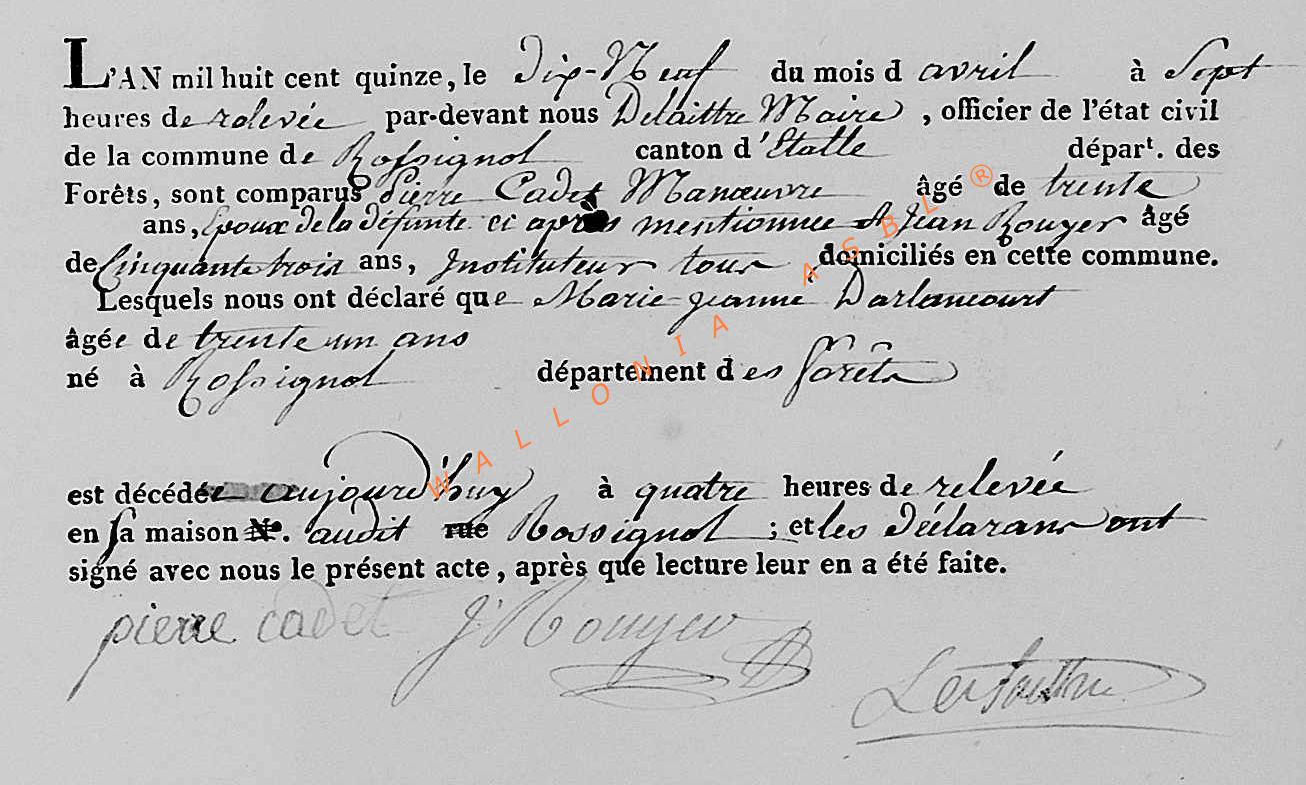 L'AN mil huit cent quinze, le Dix-Neuf du mois d avril à Sept
heures de relevée par-devant nous Delaittre Maire, officier de l'état civil
de la commune de Rossignol canton d'Etalle départ. des
Forêts, sont comparus Pierre Cadet Manœuvre âgé de trente
ans, Epoux de la défunte ci après mentionnée et Jean Rouyer âgé
de Cinquante trois ans, Instituteur tous domiciliés en cette commune.
Lesquels nous ont déclaré que Marie-Jeanne Darlancourt
âgée de trente un ans
né à Rossignol département des forêts
est décédée aujourd'huy à quatre heures de relevée
en sa maison N°. audit rue Rossignol; et les déclarans ont
signé avec nous le présent acte, après que lecture leur en a été faite.
pierre cadet J. Rouyer
WALLONIA ASBL ®